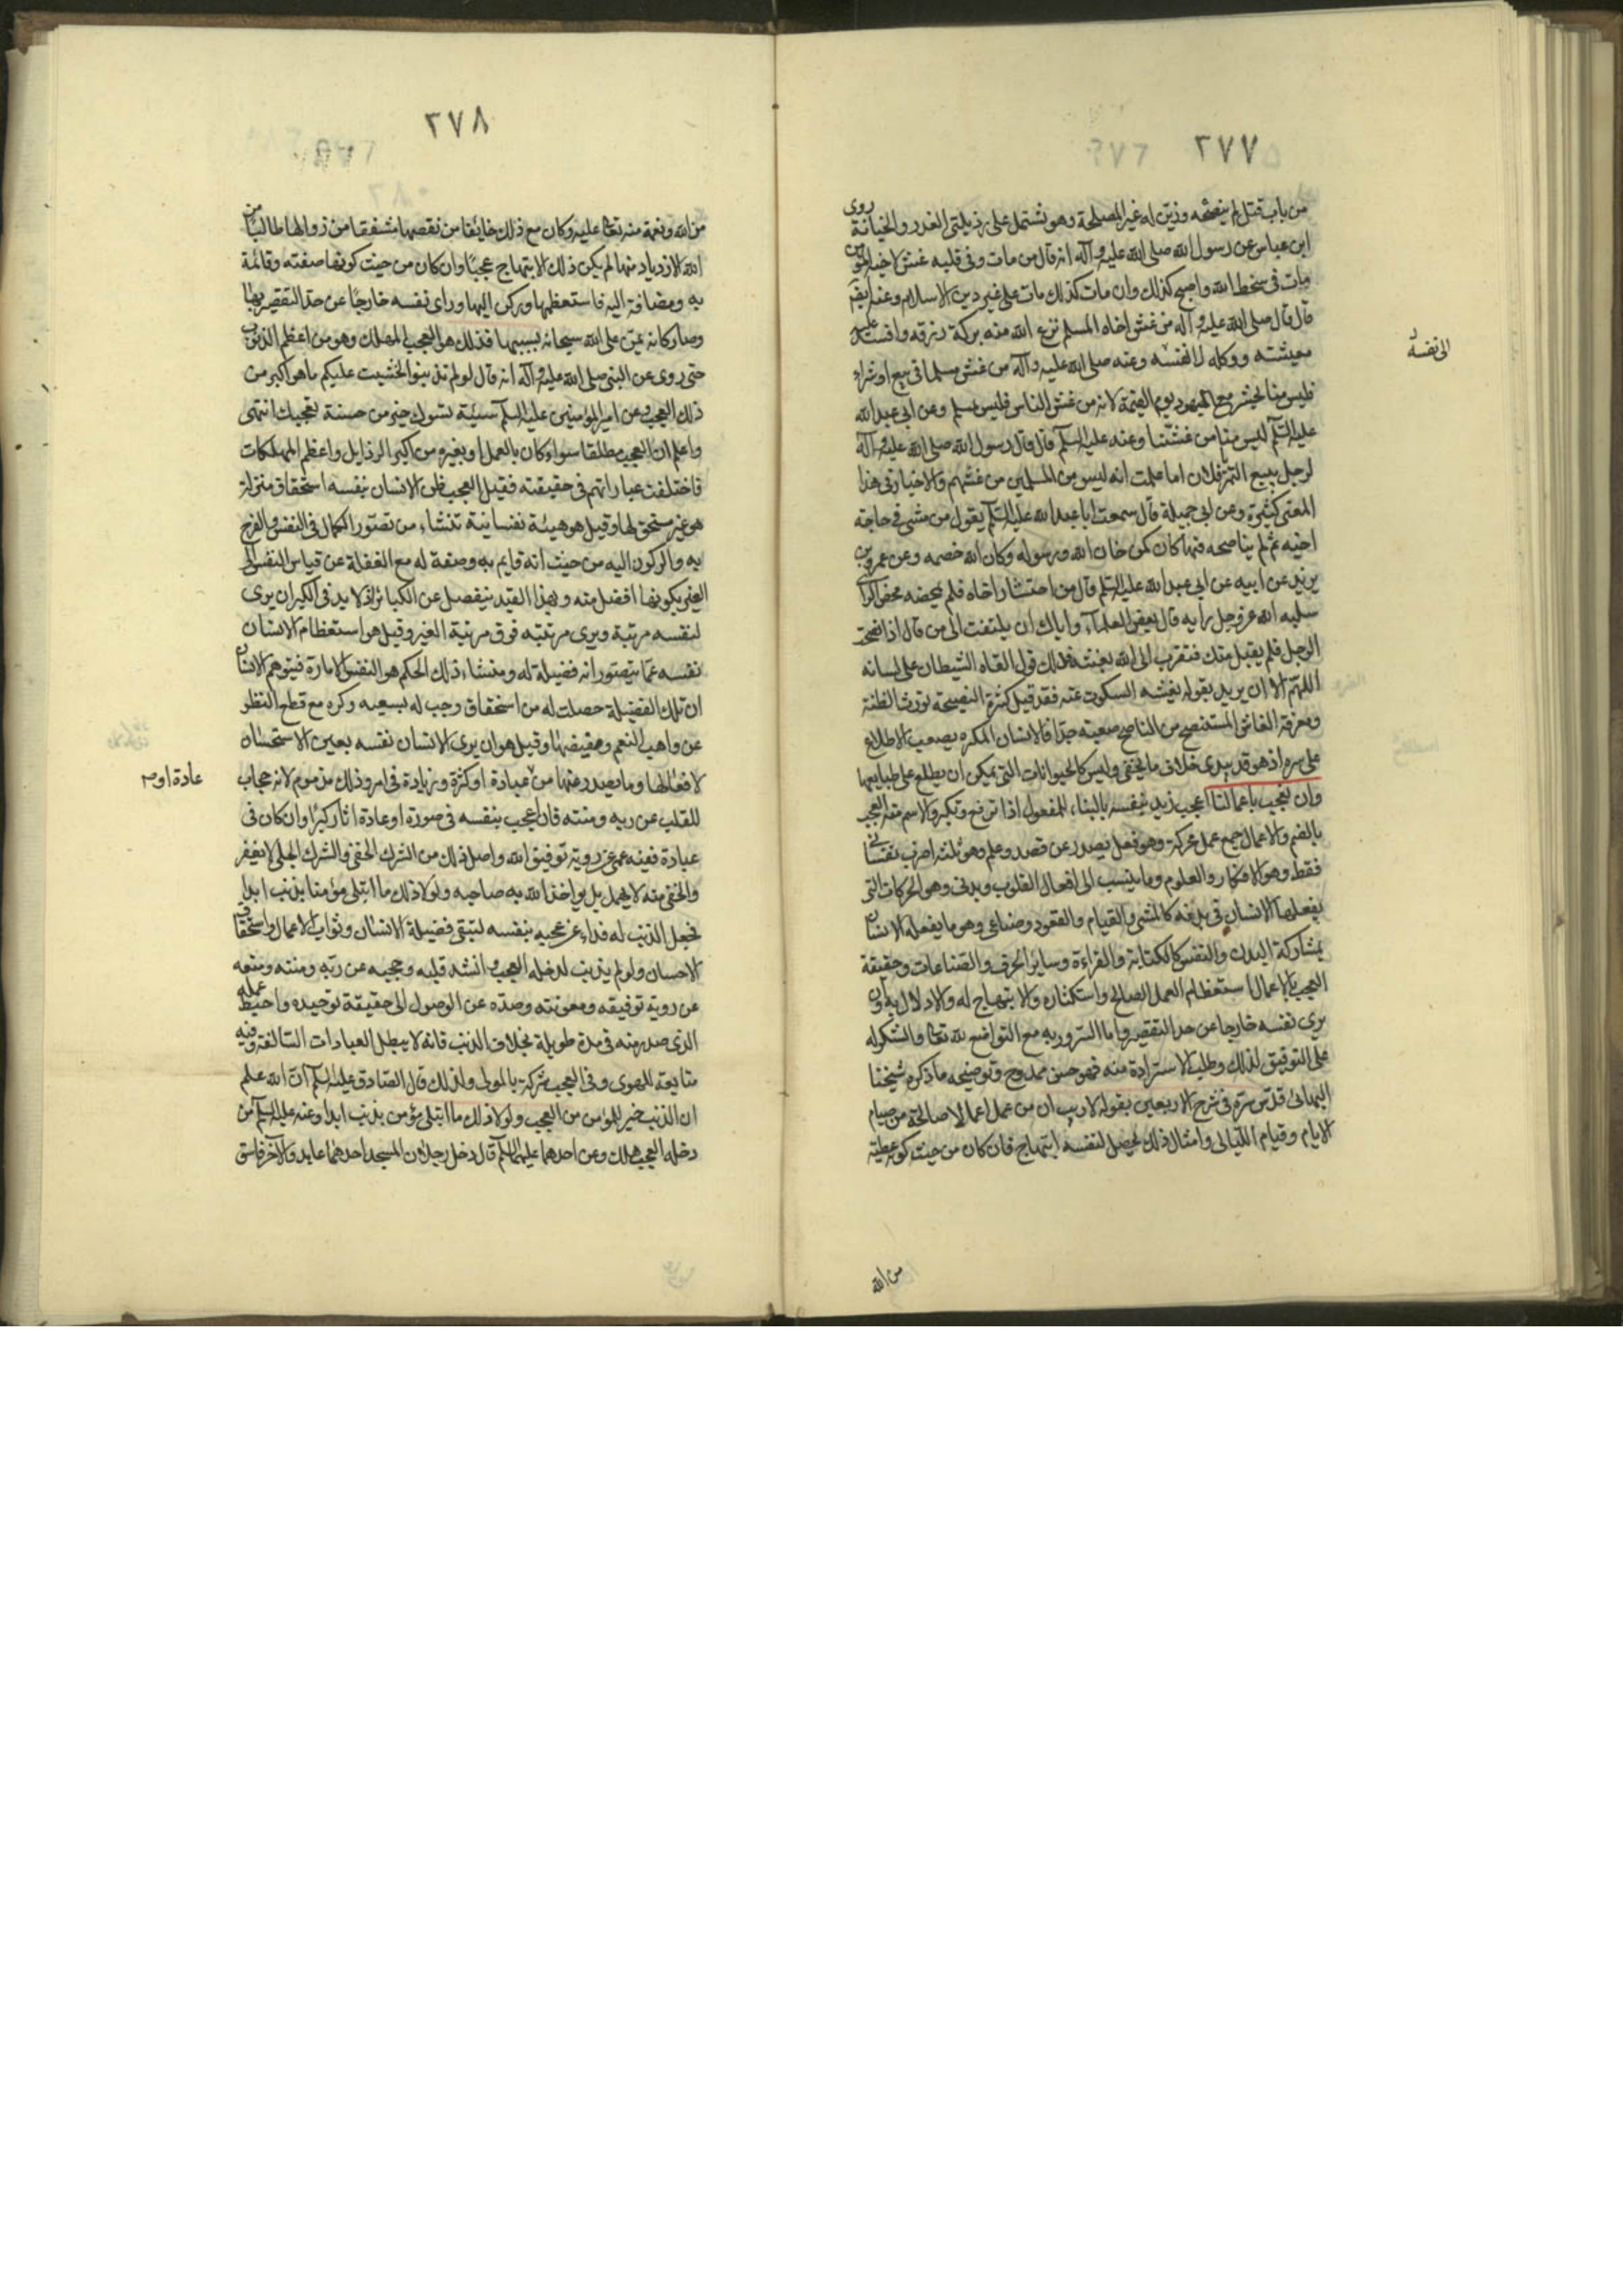 ٢٧٧
من باب قتل لم ينصحه وزين له غير المصلحة وهو يشتمل على رذيلتي الغدر والخيانة روى
ابن عباس عن رسول الله صلى الله عليه وآله انه قال من مات وفى قلبه غش لاخيه المؤمن
مات فى سخط الله واصبح كذلك وان مات كذلك مات على غير دين الاسلام وعنه ايضا
قال قال صلى الله عليه وآله من غش اخاه المسلم نزع الله منه بركة رزقه وافسد عليه
معيشته ووكله الى نفسه وعنه صلى الله عليه وآله من غش مسلما فى بيع او شراء
فليس منا يحشر مع اليهود يوم القيمة لانه من غش الناس فليس بمسلم وعن ابى عبد الله
عليه السلم ليس منا من غشنا وعنه عليه السلم قال قال رسول الله صلى الله عليه وآله
لرجل يبيع التمر فلان اما علمت انه ليس من المسلمين من غشهم والاخبار فى هذا
المعنى كثيرة وعن ابى جميلة قال سمعت ابا عبد الله عليه السلم يقول من مشى فى حاجة
اخيه ثم لم يناصحه فيها كان كمن خان الله ورسوله وكان الله خصمه وعن عمر بن
يزيد عن ابيه عن ابى عبد الله عليه السلم قال من استشار اخاه فلم يمحضه محض الراى
سلبه الله عز وجل رأيه قال بعض العلماء واياك ان يلتفت الى من قال اذا نصحت
الرجل فلم يقبل منك فتقرب الى الله بغشه فذلك قول القاه الشيطان على لسانه
اللهم الا ان يريد بقوله بغشه السكوت عنه فقد قيل كثرة النصيحة تورث الظنة
ومعرفة الغاش المستنصح من الناصح صعبة جدا فالانسان لمكره يصعب الاطلاع
على سره اذ هو قد يبدى خلاف ما يخفى وليس كالحيوانات التى يمكن ان يطلع على طبايعها
وان نعجب باعمالنا اعجب زيد بنفسه بالبناء للمفعول اذا ترفع وتكبر والاسم منه العجب
بالضم والاعمال جمع عمل محركة وهو فعل يصدر عن قصد وعلم وهو ثلثة اضرب نفسانى
فقط وهو الافكار والعلوم وما ينسب الى افعال القلوب وبدنى وهو الحركات التى
يفعلها الانسان فى بدنه كالمشى والقيام والقعود وصناعى وهو ما يفعله الانسان
بمشاركة البدن والنفس كالكتابة والقراءة وساير الحرف والصناعات وحقيقة
العجب بالاعمال استعظام العمل الصالح واستكثاره والابتهاج له والادلال به وان
يرى نفسه خارجا عن حد التقصير واما السرور به مع التواضع لله تعالى والشكر له
على التوفيق لذلك وطلب الاستزادة منه فهو حسن ممدوح وتوضيحه ما ذكره شيخنا
البهائى قدس سره فى شرح الاربعين بقوله لا ريب ان من عمل اعمالا صالحة من صيام
الايام وقيام الليالى وامثال ذلك يحصل لنفسه ابتهاج فان كان من حيث كونه عطية
من الله
الى نفسه
٢٧٨
من الله ونعمة منه تعالى عليه وكان مع ذلك خايفا من نقصها مشفقا من زوالها طالبا من
الله الازدياد منها لم يكن ذلك الابتهاج عجبا وان كان من حيث كونها صفته وقائمة
به ومضافة اليه فاستعظمها وركن اليها وراى نفسه خارجا عن حد التقصير بها
وصار كانه يمن على الله سبحانه بسببها فذلك هو العجب المهلك وهو من اعظم الذنوب
حتى روى عن النبى صلى الله عليه وآله انه قال لو لم تذنبوا لخشيت عليكم ما هو اكبر من
ذلك العجب وعن امير المؤمنين عليه السلم سيئة تسوءك خير من حسنة تعجبك انتهى
واعلم ان العجب مطلقا سواء كان بالعمل او بغيره من اكبر الرذايل واعظم المهلكات
فاختلفت عباراتهم فى حقيقته فقيل العجب ظن الانسان بنفسه استحقاق منزلة
هو غير مستحق لها وقيل هو هيئة نفسانية تنشاء من تصور الكمال فى النفس والفرح
به والركون اليه من حيث انه قايم به وصفة له مع الغفلة عن قياس النفس الى
الغير بكونها افضل منه وبهذا القيد ينفصل عن الكبر اذ لا بد فى الكبر ان يرى
لنفسه مرتبة ويرى مرتبته فوق مرتبة الغير وقيل هو استعظام الانسان
نفسه عما يتصور انه فضيلة له ومنشاء ذلك الحكم هو النفس الامارة فيتوهم الانسان
ان تلك الفضيلة حصلت له من استحقاق وجب له بسعيه وكره مع قطع النظر
عن واهب النعم ومفيضها وقيل هو ان يرى الانسان نفسه بعين الاستحسان
لافعالها وما يصدر عنها من عبادة او كثرة وزيادة فى امر وذلك مذموم لانه حجاب
للقلب عن ربه ومنته فان اعجب بنفسه فى صورة او عادة اثار كبرا وان كان فى
عبادة ففيه عمى عن روية توفيق الله واصل ذلك من الشرك الخفى والشرك الجلى لا يغفر
والخفى منه لا يهمل بل يواخذ الله به صاحبه ولولا ذلك ما ابتلى مؤمنا بذنب ابدا
فجعل الذنب له فداء عن عجبه بنفسه لتبقى فضيلة الانسان وثواب الاعمال واستحقاق
الاحسان ولو لم يذنب لدخله العجب وافسد قلبه وحجبه عن ربه ومنته ومنعه
عن روية توفيقه ومعونته وصده عن الوصول الى حقيقة توحيده واحبط عمله
الذى صدر منه فى مدة طويلة بخلاف الذنب فانه لا يبطل العبادات السالفة وفيه
متابعة للهوى وفى العجب شركة بالمولى ولذلك قال الصادق عليه السلم ان الله علم
ان الذنب خير للمؤمن من العجب ولولا ذلك ما ابتلى مؤمن بذنب ابدا وعنه عليه السلم من
دخله العجب هلك وعن احدهما عليهما السلم قال دخل رجلان المسجد احدهما عابد والآخر فاسق
عادة او م